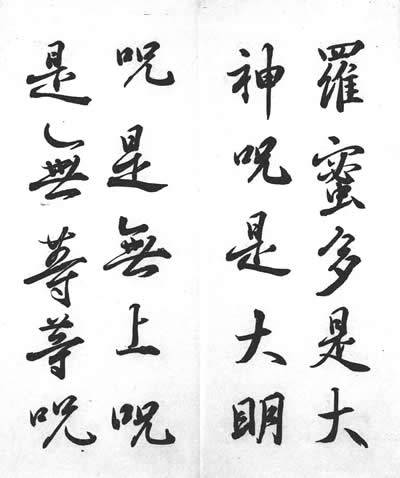 羅蜜多是大
神呪是大明
呪是無上呪
是無等等呪